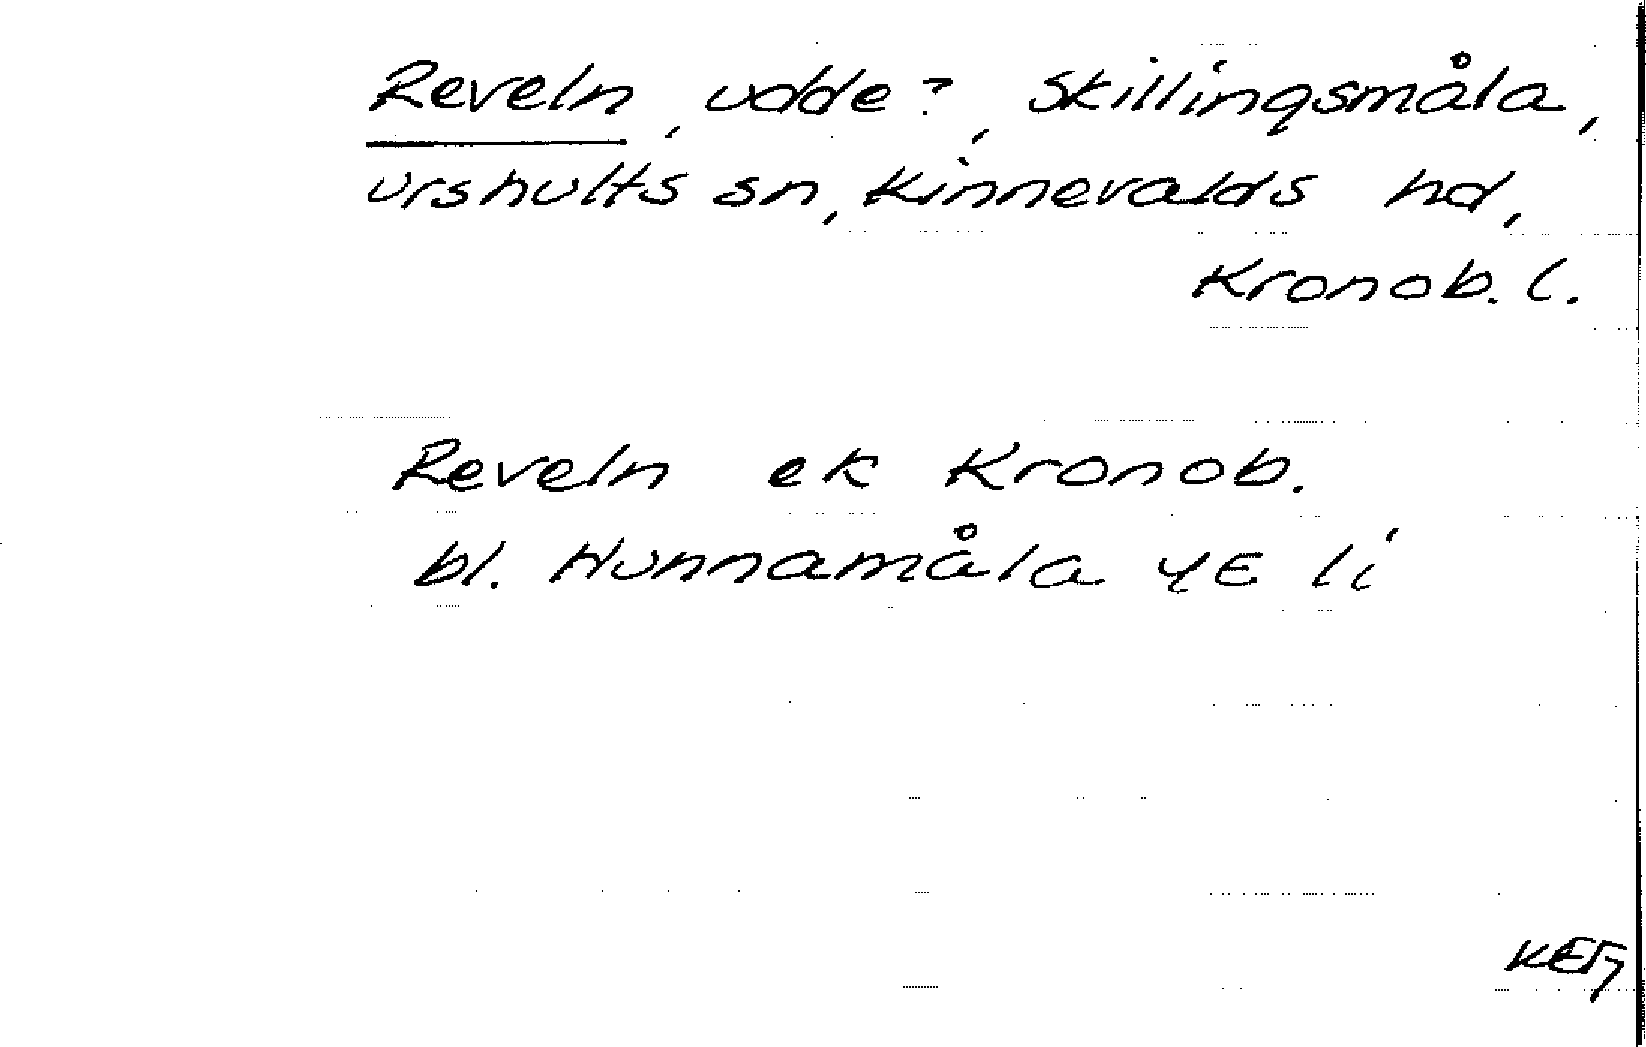 Reveln, udde?, Skillingsmåla,
Urshults sn, Kinnevalds hd,
Kronob. l.
Reveln ek Kronob.
bl. Hunnamåla 4E li